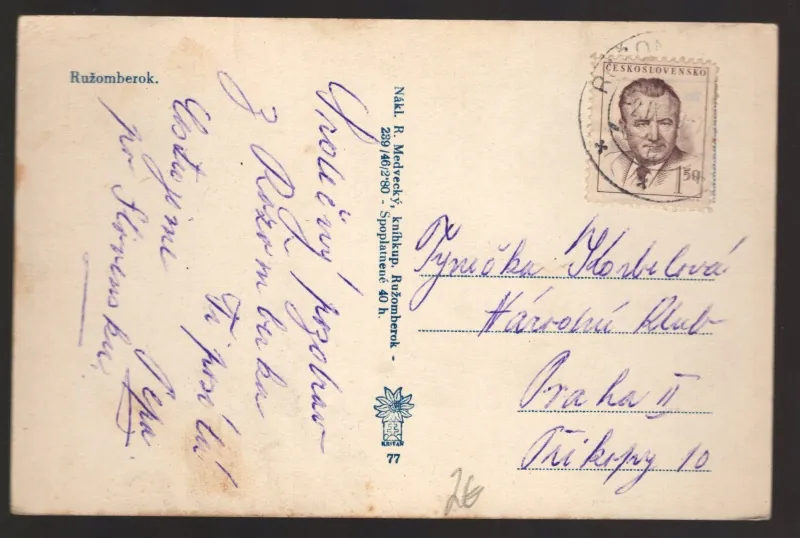 Ružomberok.
Srdečný pozdrav
z Rožomberka
Ti posílá
Pepa.
Cestujeme
po Slovensku.
Nákl. R. Medvecký, kníhkup. Ružomberok -
239/46/2·80 - Spoplatnené 40 h.
77
ČESKOSLOVENSKO
1.50
Tynečka Korbelová
Národní Klub
Praha II
Příkopy 10
26